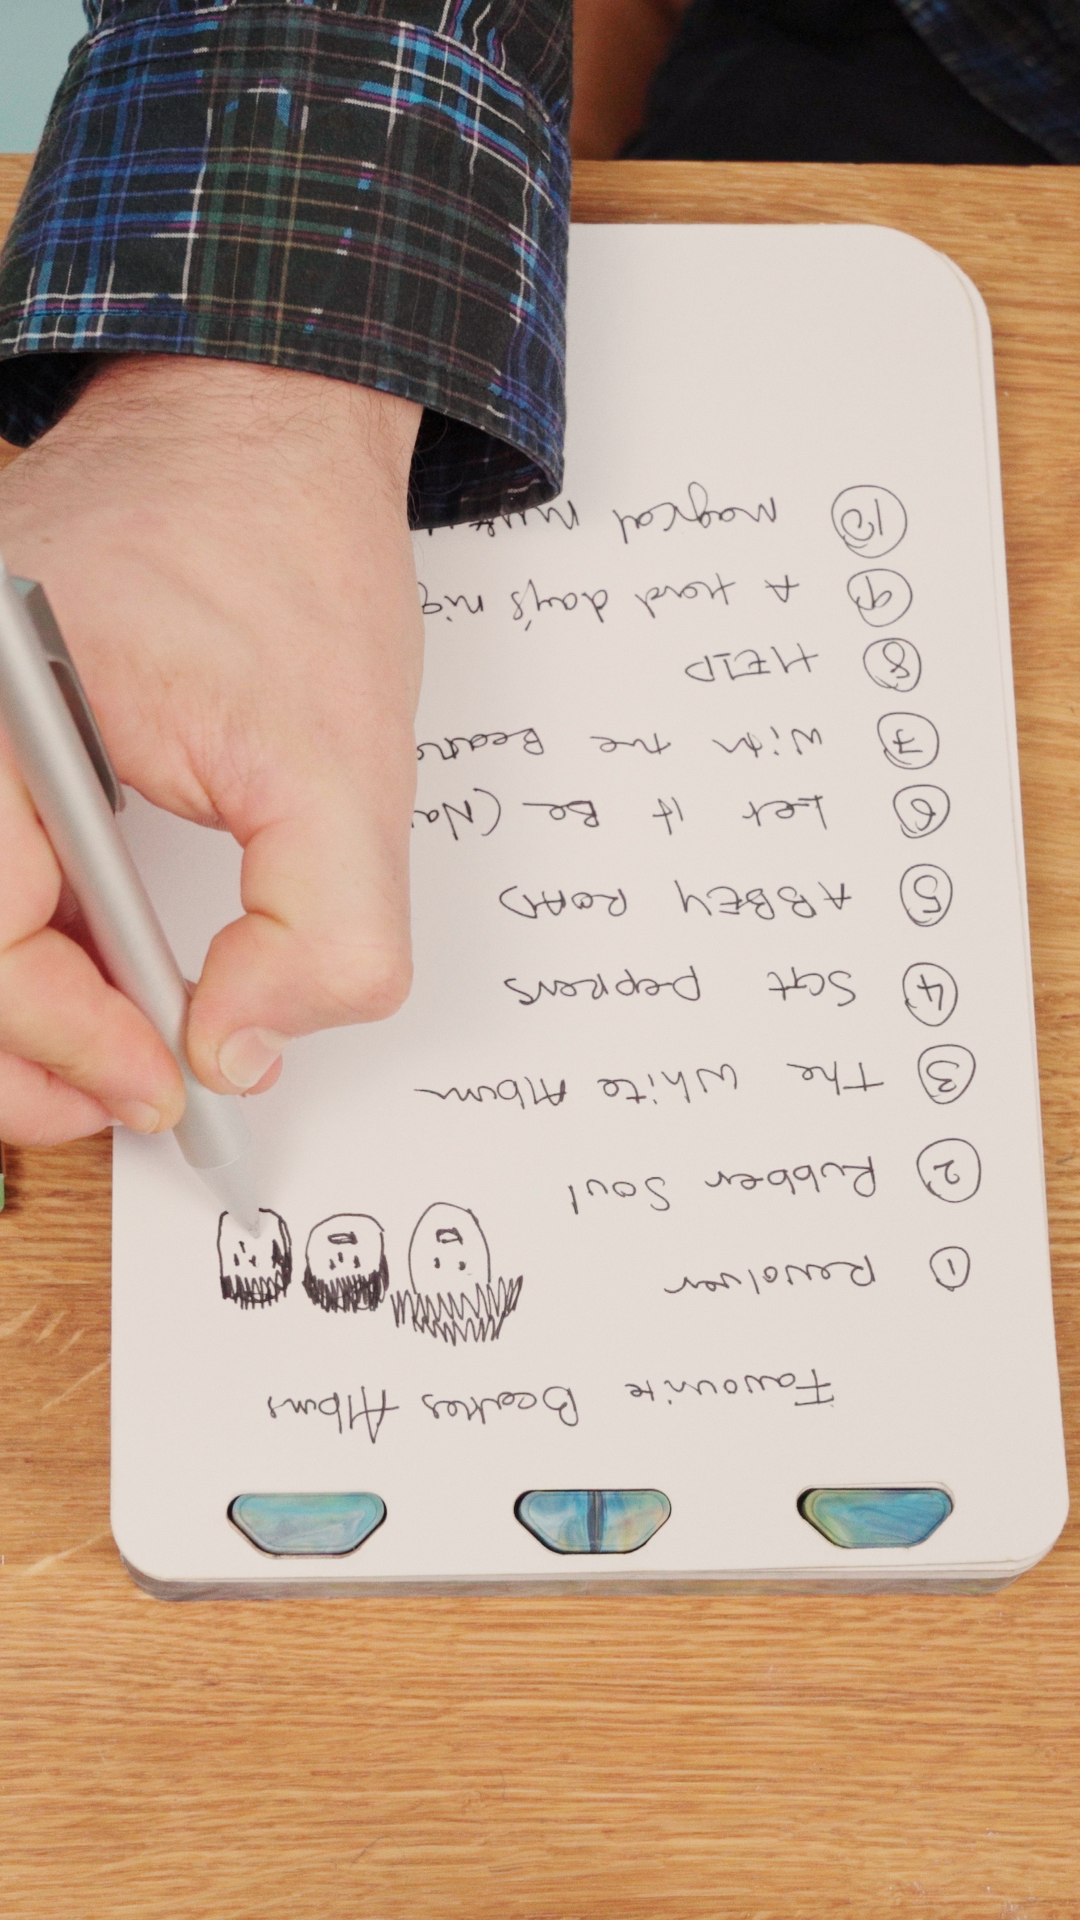 Favourite Beatles Albums
① Revolver
② Rubber Soul
③ The White Album
④ Sgt peppers
⑤ ABBEY ROAD
⑥ Let it Be (Na
⑦ With the Beatl
⑧ HElP
⑨ A Hard day's nig
⑩ Magical Myst